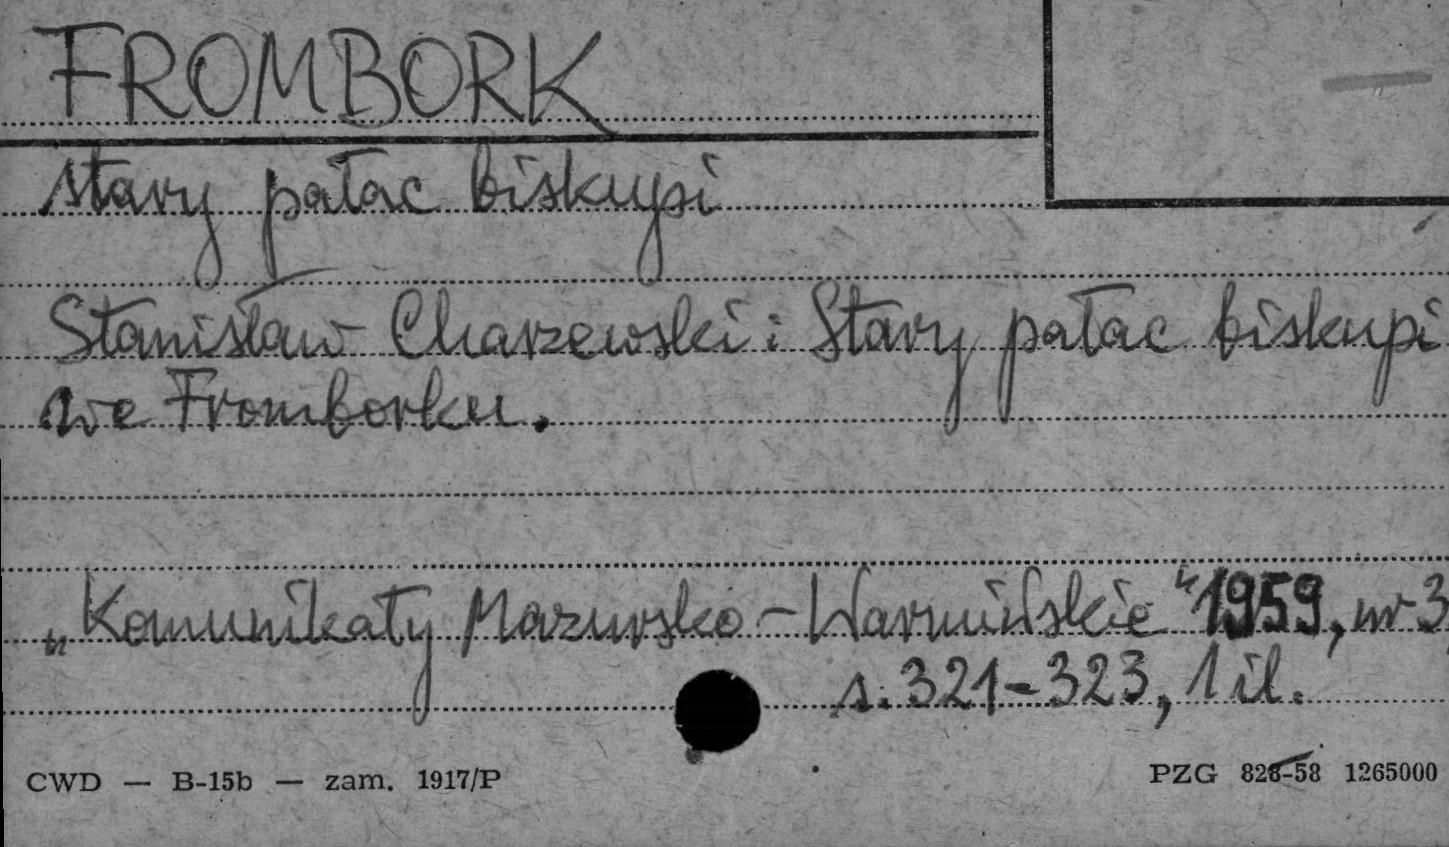 FROMBORK
stary pałac biskupi
Stanisław Charzewski: Stary pałac biskupi
we Fromborku.
„Komunikaty Mazursko-Warmińskie" 1959, nr 3,
s. 321-323, 1 il.
CWD — B-15b — zam. 1917/P
PZG 828-58 1265000